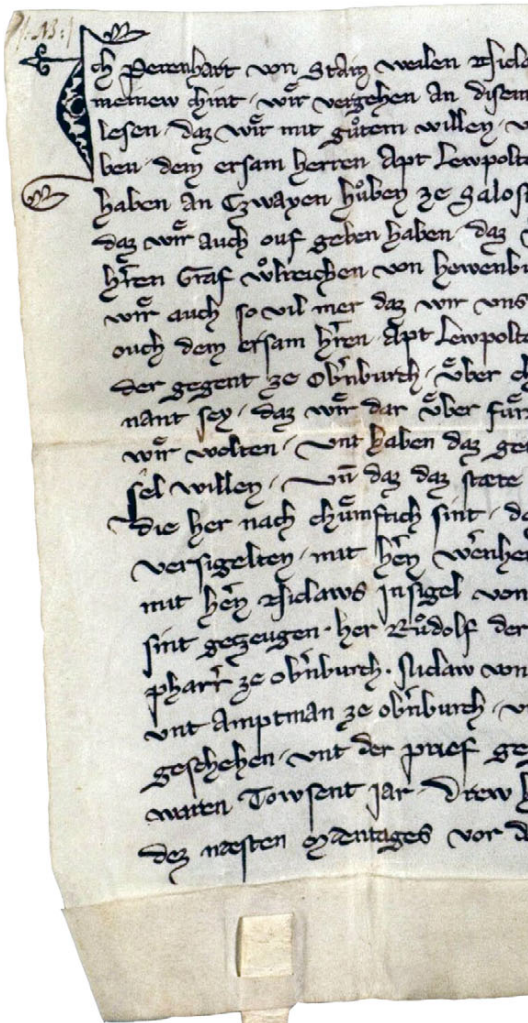 :13:
Ich Perenhart von Stain weilen Niclaw
meinew chint · wir vergehen an disem
lesen · daz wir mit gůtem willen · v
ben · dem ersam herren Apt Lewpolt
haben an Czwayen hůben ze Salost
daz wir auch ouf geben haben · daz
hr̄en Graf Vlreichen von Hewenbu
wir auch so vil mer daz wir vns
ouch dem ersam hr̄en Apt Lewpolte
der gegent ze Obn̄burch · Vber ch
nant sey · daz wir dar Vber für
wir wolten · vnt haben daz get
sel willen · vn̄ daz daz stæte
die her nach chümftich sint · da
versigelten · mit hen̄ wēnhe
mit hen̄ Niclaws Insigel von
sint geczeugen · her Růdolf der
pharr̄ ze obn̄burch · Niclaw von
vnt Amptman ze obn̄burch · v
geschehen · vnt der prief ge
waren Towsent jar · Drew h
dez næsten Mentages vor d